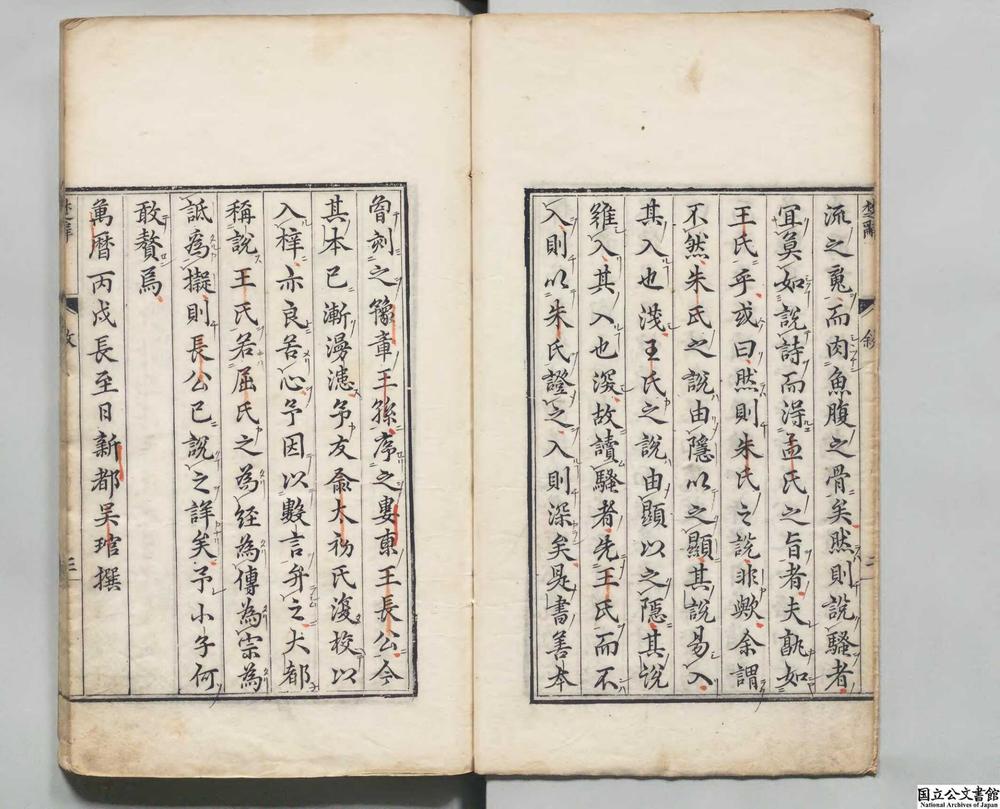 流之冤而肉魚腹之骨矣然則說騷者
宜莫如說詩而得孟氏之旨者夫孰如
王氏乎或曰然則朱氏之說非歟余謂
不然朱氏之說由隱以之顯其說易入
其入也淺王氏之說由顯以之隱其說
雖入其入也深故讀騷者先王氏而不
入則以朱氏證之入則深矣是書善本
曾刻之豫章王孫序之婁東王長公今
其本已漸漫漶予友俞太初氏復校以
入梓亦良苦心予因以數言弁之大都
稱說王氏若屈氏之為經為傳為宗為
詆為擬則長公已說之詳矣予小子何
敢贅焉
萬曆丙戌長至日新都吳琯撰
楚辭
叙
二
三
国立公文書館
National Archives of Japan